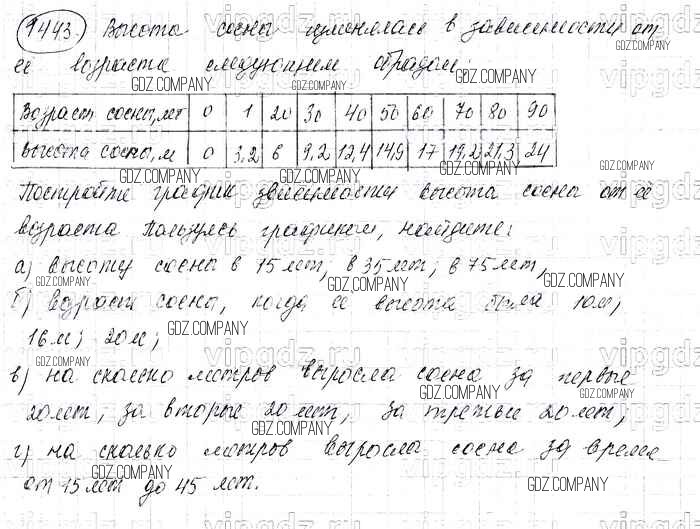 1443. Высота сосны изменялась в зависимости от
её возраста следующим образом:
Возраст сосны, лет 0 1 20 30 40 50 60 70 80 90
Высота сосны, м 0 3,2 6 9,2 12,4 14,9 17 19,2 21,3 24
Постройте график зависимости высота сосны от её
возраста Пользуясь графиком, найдите:
а) высоту сосны в 15 лет, в 35 лет, в 75 лет,
б) возраст сосны, когда её высота была 10м,
16м; 20м;
в) на сколько метров выросла сосна за первые
20 лет, за вторые 20 лет, за третьи 20 лет,
г) на сколько метров выросла сосна за время
от 15 лет до 45 лет.
GDZ.COMPANY
vipgdz.ru